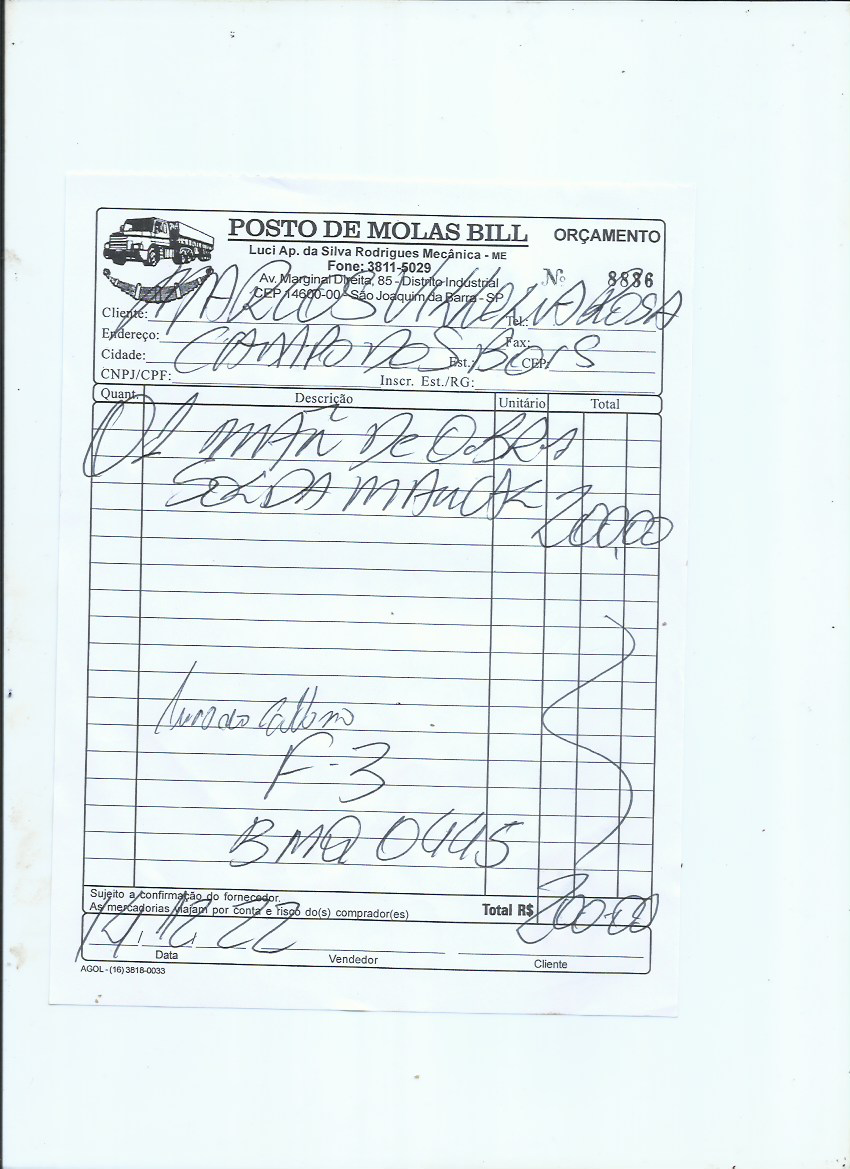 POSTO DE MOLAS BILL
ORÇAMENTO
Luci Ap. da Silva Rodrigues Mecânica - ME
Fone: 3811-5029
Av. Marginal Direita, 85 - Distrito Industrial
CEP 14600-00 - São Joaquim da Barra - SP
Nº 8836
Cliente: MARCOS Tel.: ROSA
Endereço: Fax:
Cidade: CAMPO DOS BOIS Est.: CEP:
CNPJ/CPF: Inscr. Est./RG:
Quant. Descrição Unitário Total
01 MÃO DE OBRA
SOLDA MANCAL 200,00
F-3
BMQ 0445
Sujeito a confirmação do fornecedor.
As mercadorias viajam por conta e risco do(s) comprador(es)
Total R$ 200-00
14.12.22
Data Vendedor Cliente
AGOL - (16) 3818-0033